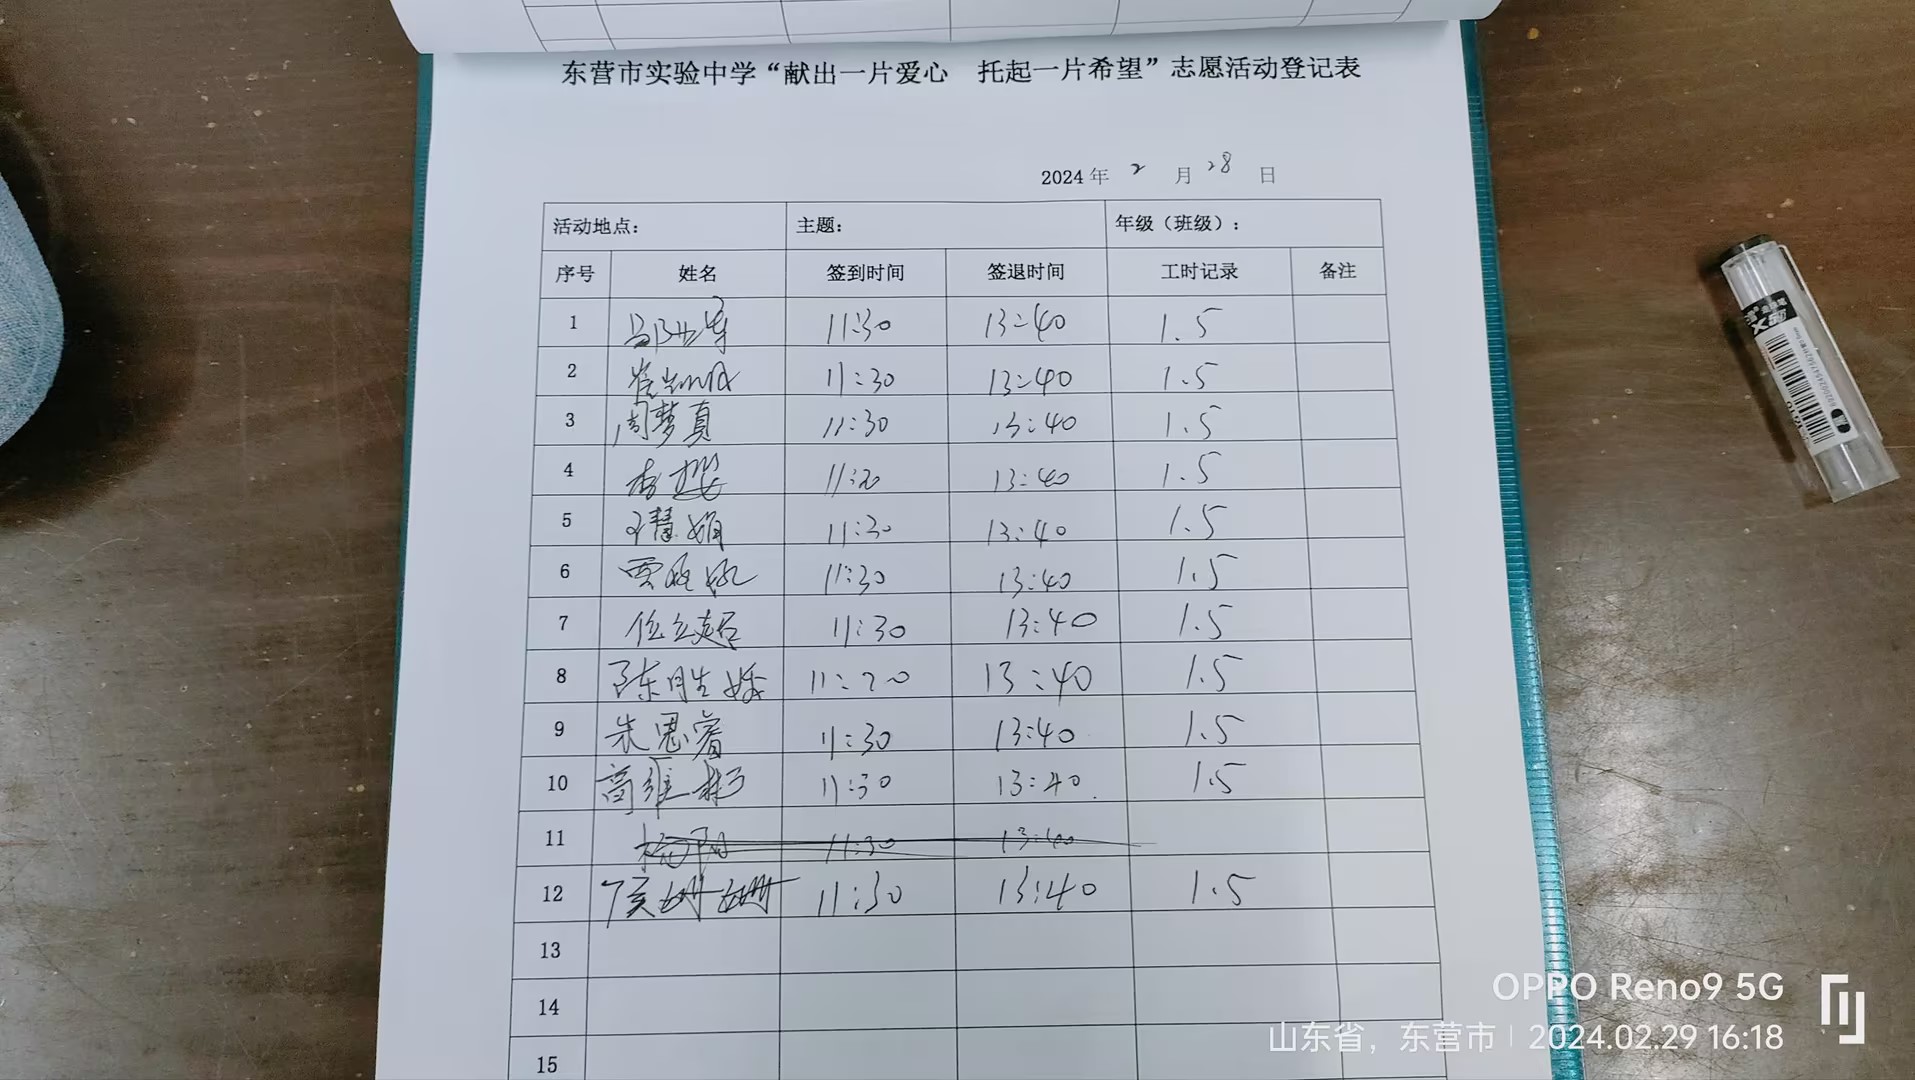 东营市实验中学“献出一片爱心 托起一片希望”志愿活动登记表
2024 年 2 月 28 日
活动地点： 主题： 年级（班级）：
序号 姓名 签到时间 签退时间 工时记录 备注
1 11:30 13:40 1.5
2 11:30 13:40 1.5
3 周梦真 11:30 13:40 1.5
4 13:40 1.5
5 王慧娟 11:30 13:40 1.5
6 贾 11:30 13:40 1.5
7 任立超 11:30 13:40 1.5
8 陈 11:20 13:40 1.5
9 朱思睿 11:30 13:40 1.5
10 高维彬 11:30 13:40 1.5
11 杨阳 11:30 13:40
12 侯姗姗 11:30 13:40 1.5
13
14
15
OPPO Reno9 5G
山东省，东营市 | 2024.02.29 16:18